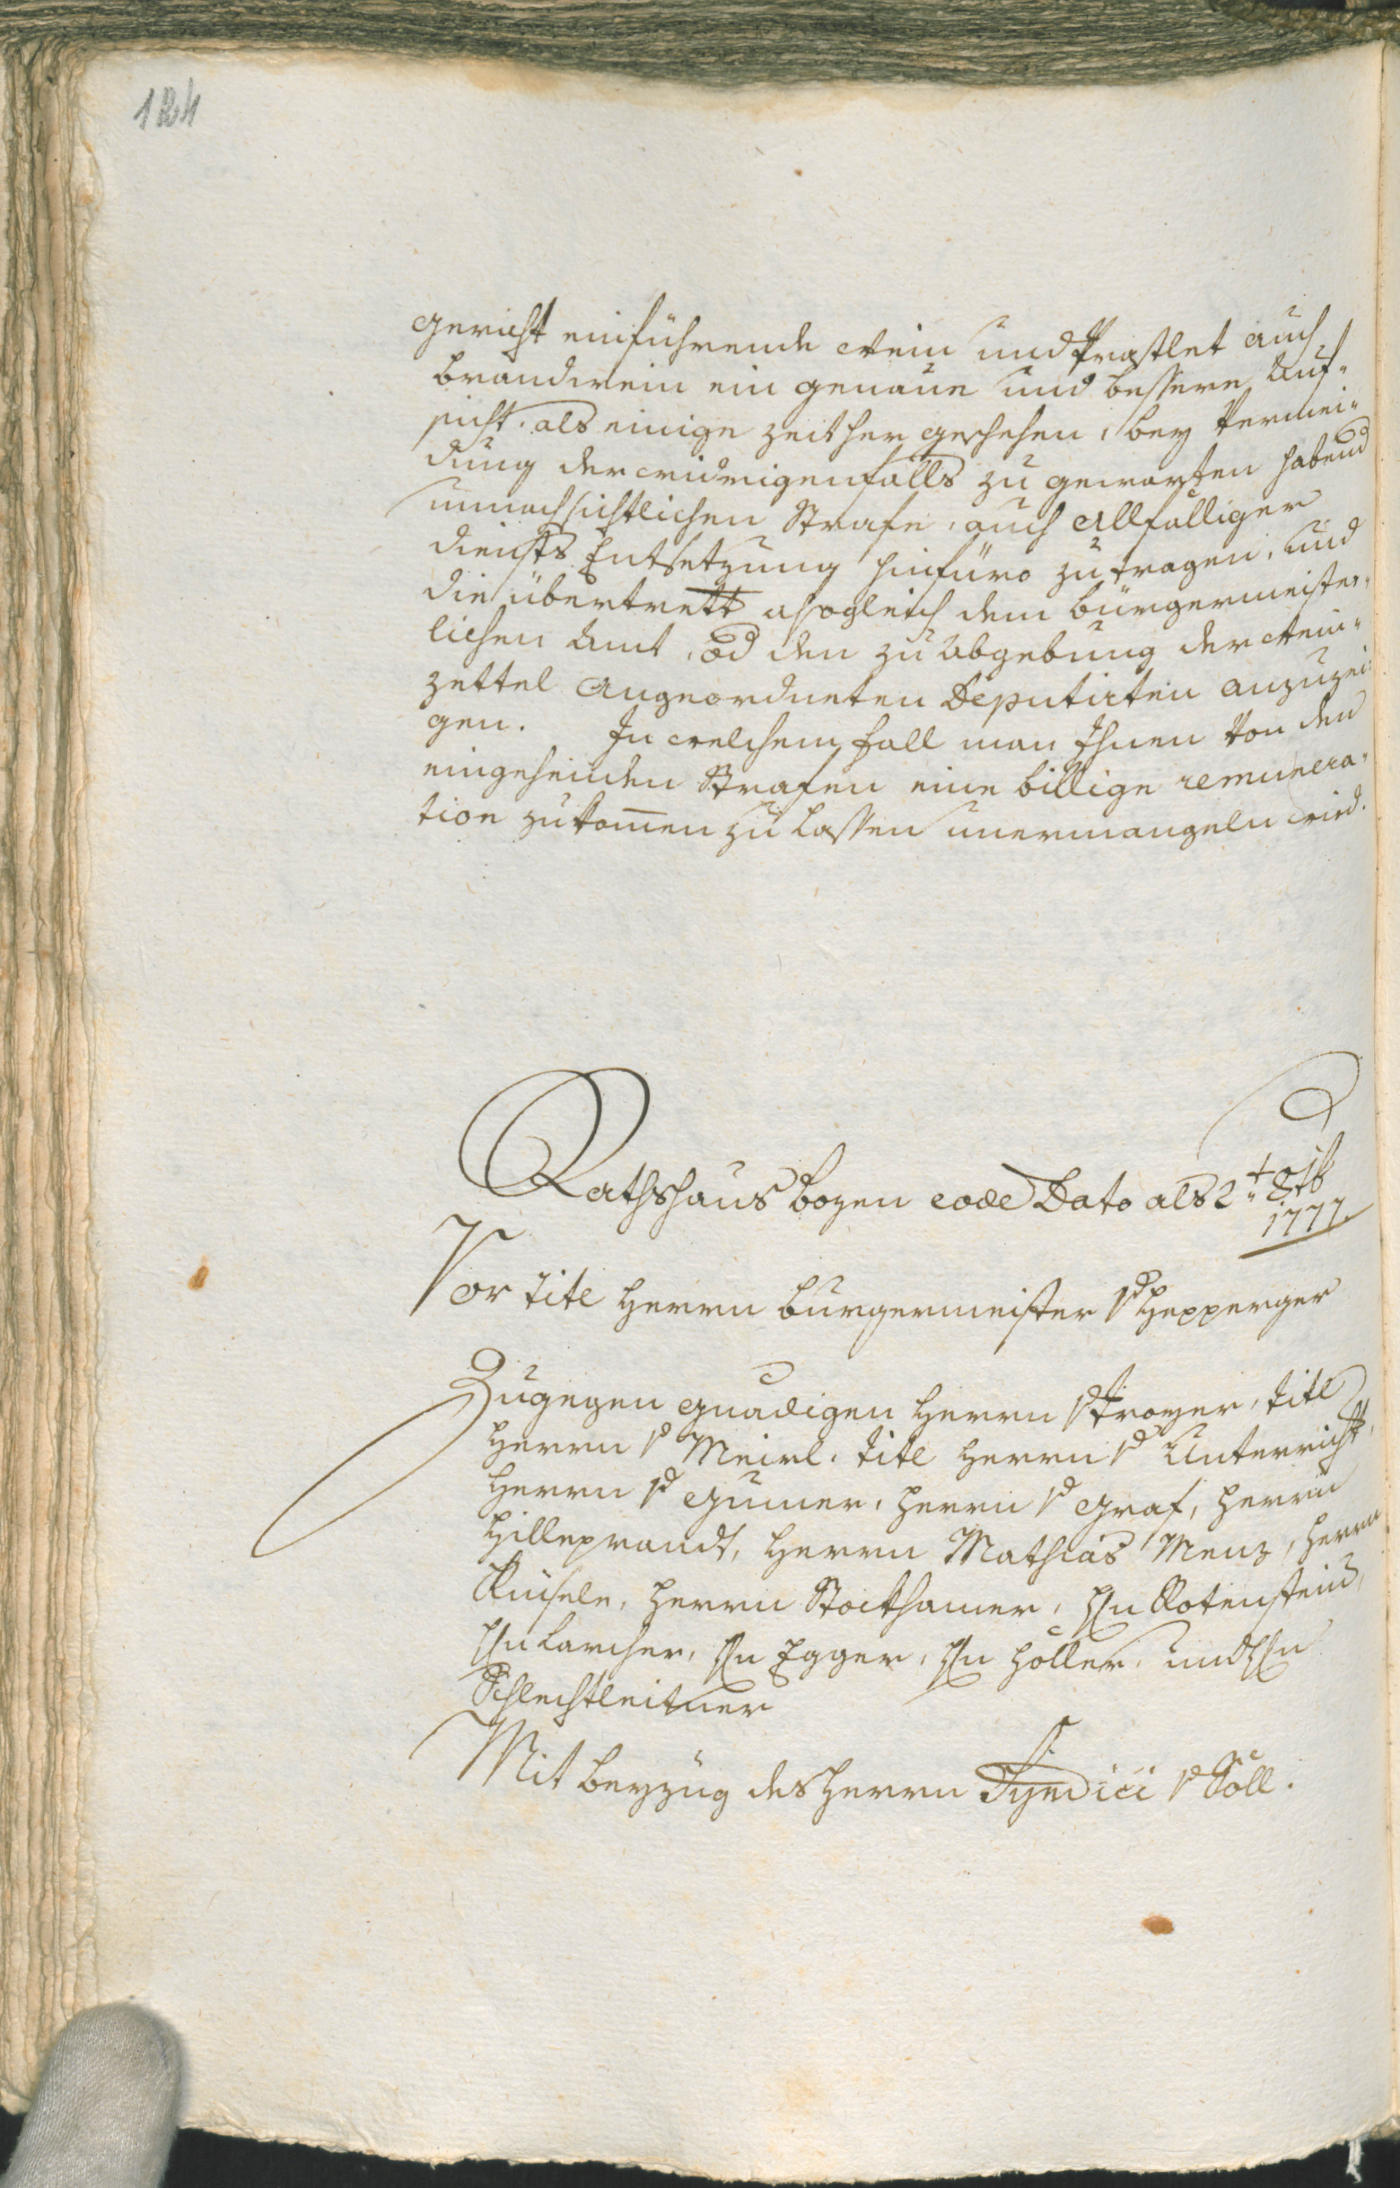 124
gericht einführende Wein und Praslet auch
brandwein ein genaue und bessere Auf-
sicht, als einige zeit her geschehen, bey Vermei-
dung der widrigenfalls zu gewarten habend
unnachsichtlichen Strafe, auch Allfälliger
diensts Entsetzung hinfüro zu tragen, und
die übertrett alsogleich dem bürgermeister-
lichen Amt, od den zu Abgebung der Wein-
zettel angeordneten Deputirten anzuzei-
gen. In welchem fall man Ihnen Von den
eingehenden Strafen eine billige remunera-
tion zukomen zu lassen unermanglen wird.
Rathshaus bozen eode Dato als 2t
1777
Vor tite Herrn burgermeister v Hepperger
Zugegen gnädigen Herrn v Troyer, tite
Herrn v Meirl, tite Herrn v Unterricht,
Herrn v Gumer, Herrn v Graf, Herrn
Hilleprandt, Herrn Mathias Menz, Herrn
Kuisele, Herrn Stockhamer, Hn Rotenstein,
Hn Larcher, Hn Egger, Hn Höller, und Hn
Schlechtleitner
Mit beyzug des Herrn Syndici v Söll.